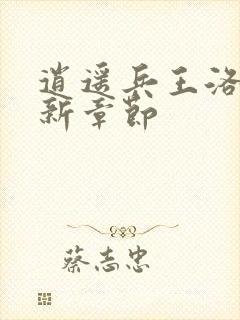 逍遥兵王洛
新章節
蔡志忠